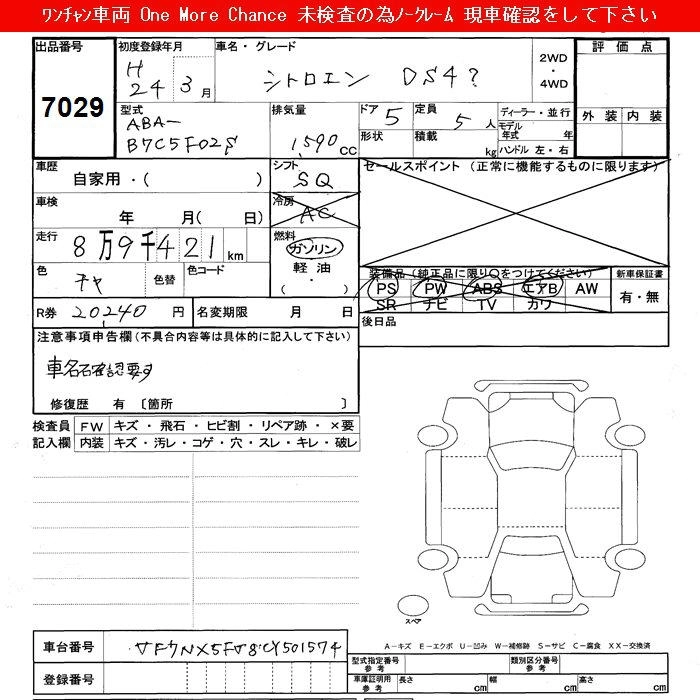 ワンチャン車両 One More Chance 未検査の為ノークレーム 現車確認をして下さい
出品番号
7029
初度登録年月
H
24 3月
車名・グレード
シトロエン DS4?
2WD
・
4WD
評価点
外装 内装
型式
ABA-
B7C5F02S
排気量
1,590cc
ドア 5
形状
定員 5人
積載 kg
ディーラー・並行
モデル年式 年
ハンドル 左・右
車歴
自家用・( )
シフト
SQ
セールスポイント(正常に機能するものに限ります)
車検
年 月( 日)
冷房
AC
走行
8万9千421km
燃料
ガソリン
軽油
・( )
色
チャ
色替
色コード
装備品(純正品に限り○をつけてください)
PS PW ABS エアB AW
SR ナビ TV カワ
新車保証書
有・無
R券 20240円
名変期限 月 日
後日品
注意事項申告欄(不具合内容等は具体的に記入して下さい)
車名確認要す
修復歴 有 〔箇所 〕
検査員
記入欄
FW キズ・飛石・ヒビ割・リペア跡・×要
内装 キズ・汚レ・コゲ・穴・スレ・キレ・破レ
スペア
車台番号
A-キズ E-エクボ U-凹み W-補修跡 S-サビ C-腐食 XX-交換済
登録番号
型式指定番号
参考
類別区分番号
参考
車庫証明用
参考
長さ cm
幅 cm
高さ cm